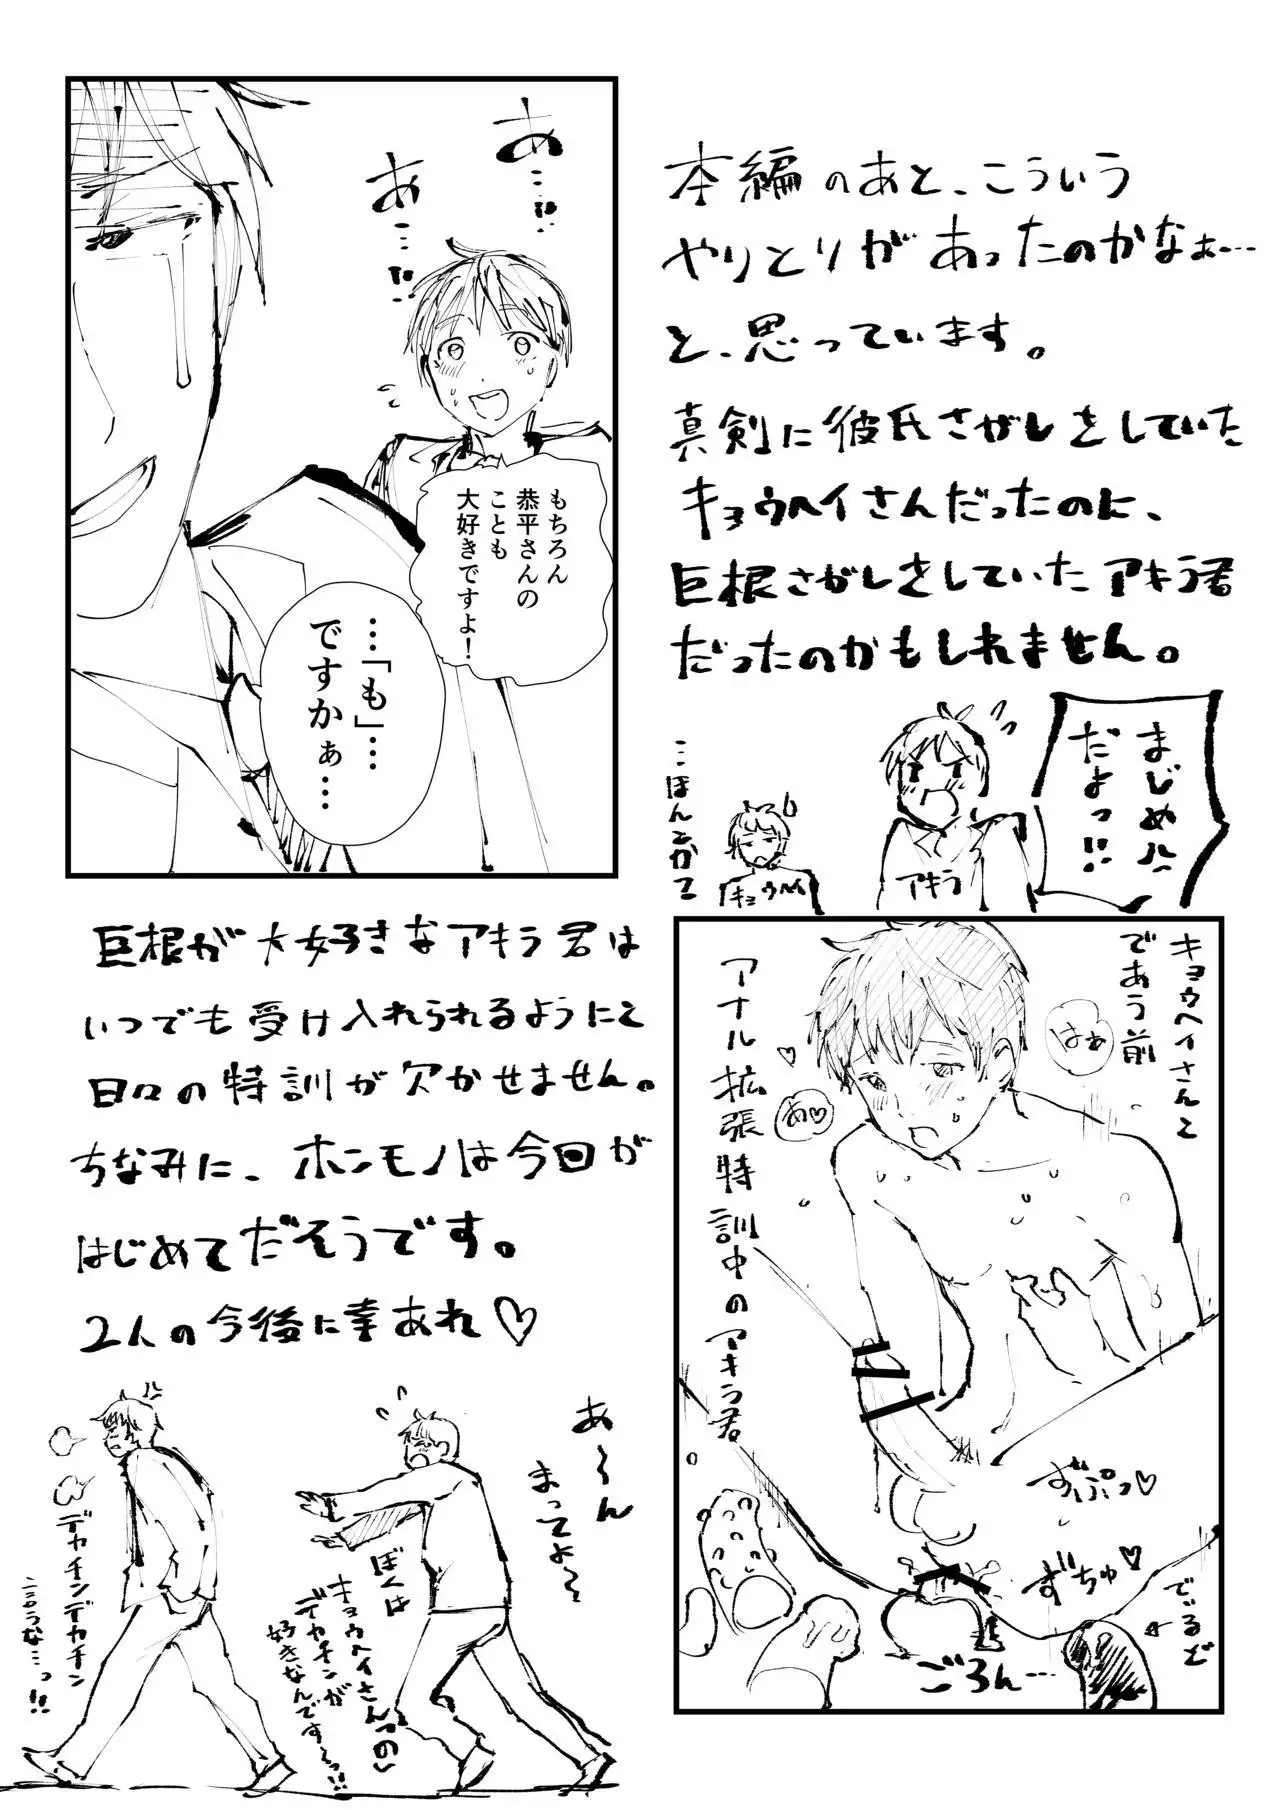 本編のあと、こういう
やりとりがあったのかなぁ…
と、思っています。
真剣に彼氏さがしをしていた
キョウヘイさんだったのに、
巨根さがしをしていたアキラ君
だったのかもしれません。
あ…!!
あ…!!
もちろん
恭平さんの
ことも
大好きですよ！
…「も」…
ですかぁ…
まじめ
だよっ!!
アキラ
キョウヘイ
…ほんとかて
キョウヘイさんと
であう前
アナル拡張特訓中のアキラ君
はぁ
あ♡
ずぷっ♡
ずちゅ♡
でぃるど
ごろん…
巨根が大好きなアキラ君は
いつでも受け入れられるようにと
日々の特訓が欠かせません。
ちなみに、ホンモノは今回が
はじめてだそうです。
2人の今後に幸あれ♡
あ〜ん
まってよ〜
ぼくは
キョウヘイさんの
デカチンが
好きなんです〜っ!!
デカチンデカチン
言うな…っ!!